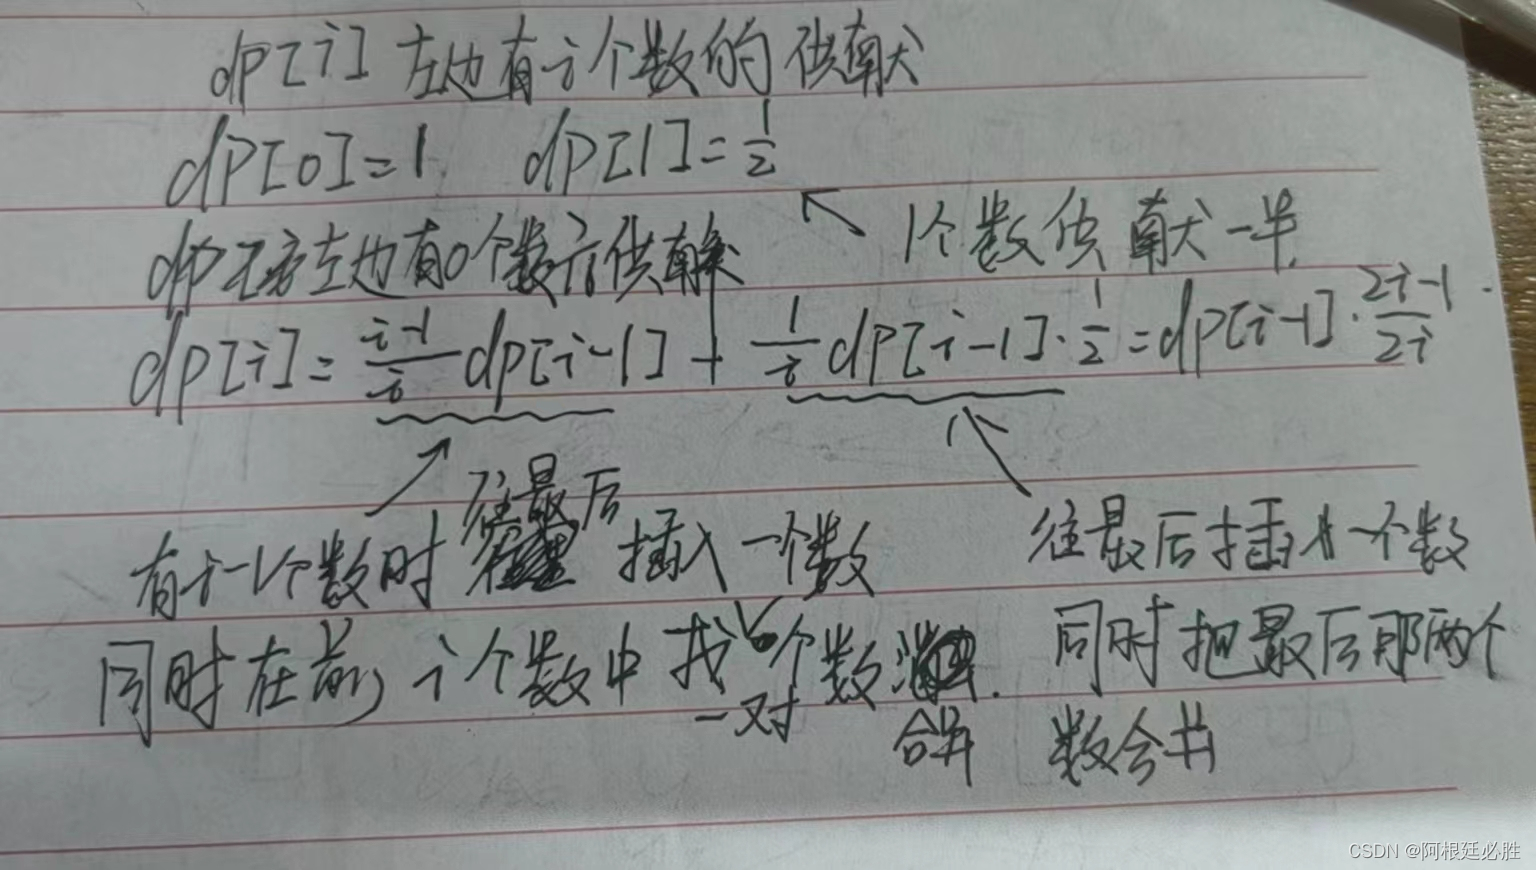 dp[i] 左边有i个数的供献
dp[0]=1 dp[1]=1/2
1个数供献一半
左边有0个数的供献
dp[i]= i-1/i dp[i-1] + 1/i dp[i-1]·1/2 = dp[i-1]·2i-1/2i
有i-1个数时 往最后 插入一个数
同时在前i个数中找 一对 个数 合并
往最后插入一个数
同时把最后那两个
数合并
CSDN @阿根廷必胜